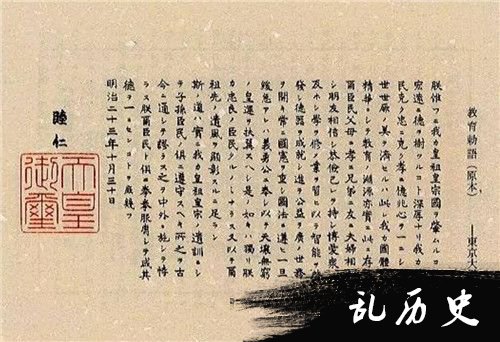 教育勅語（原本）
——東京大
朕惟フニ我カ皇祖皇宗國ヲ肇ムルコ
宏遠ニ德ヲ樹ツルコト深厚ナリ我カ
民克ク忠ニ克ク孝ニ億兆心ヲ一ニシ
世世厥ノ美ヲ濟セルハ此レ我カ國體
精華ニシテ教育ノ淵源亦實ニ此ニ存
爾臣民父母ニ孝ニ兄弟ニ友ニ夫婦相
シ朋友相信シ恭儉己レヲ持シ博愛衆
及ホシ學ヲ修メ業ヲ習ヒ以テ智能ヲ
發シ德器ヲ成就シ進テ公益ヲ廣メ世務
ヲ開キ常ニ國憲ヲ重シ國法ニ遵ヒ一旦
緩急アレハ義勇公ニ奉シ以テ天壤無窮
ノ皇運ヲ扶翼スヘシ是ノ如キハ獨リ朕
カ忠良ノ臣民タルノミナラス又以テ爾
祖先ノ遺風ヲ顯彰スルニ足ラン
斯ノ道ハ實ニ我カ皇祖皇宗ノ遺訓ニシ
テ子孫臣民ノ俱ニ遵守スヘキ所之ヲ古
今ニ通シテ謬ラス之ヲ中外ニ施シテ悖
ラス朕爾臣民ト俱ニ拳拳服膺シテ咸其
德ヲ一ニセンコトヲ庶幾フ
明治二十三年十月三十日
睦仁
天皇
御璽
乱历史